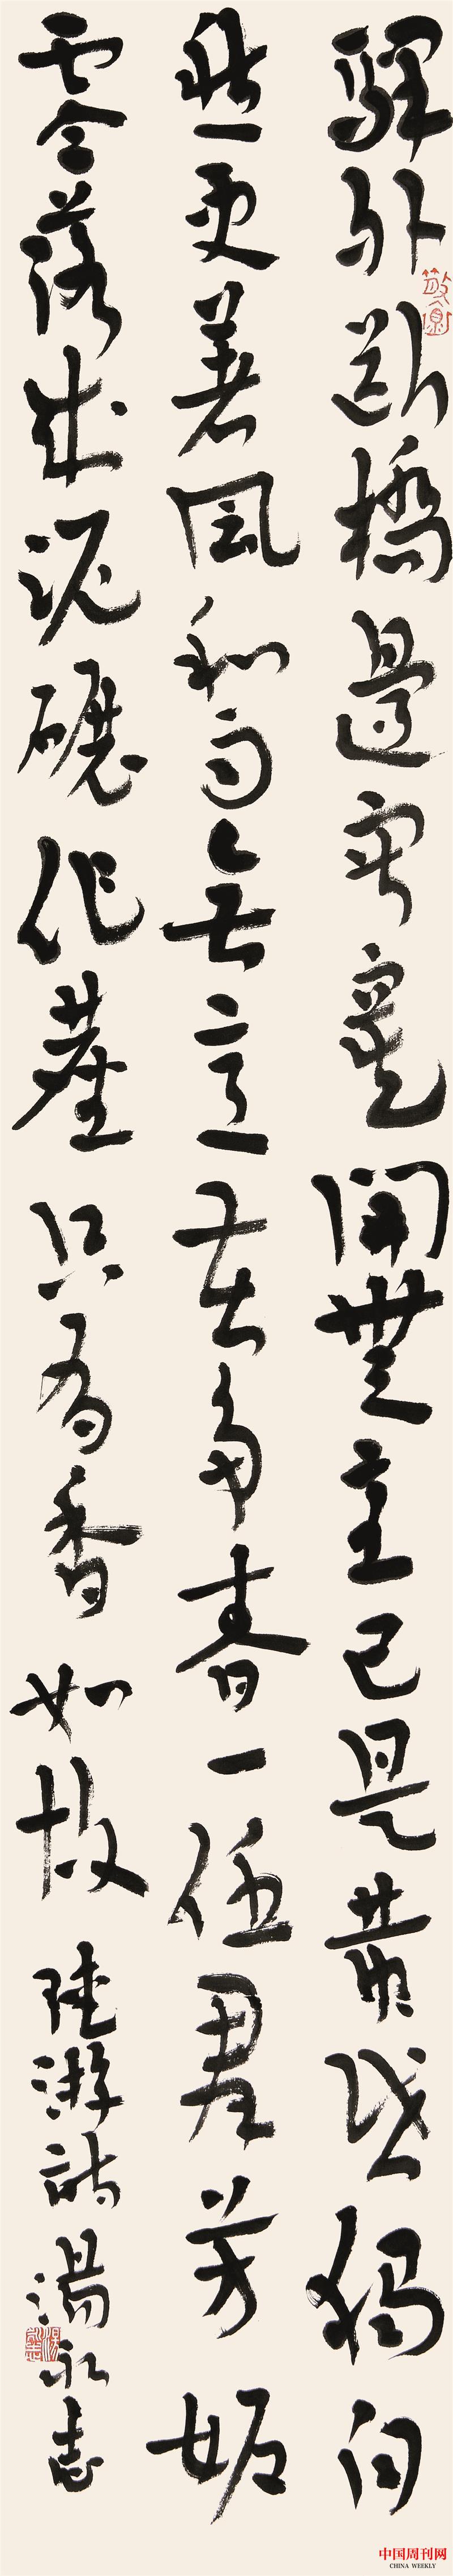 驛外斷橋邊寂寞開無主已是黄昏獨自
愁更著風和雨無意苦爭春一任羣芳妒
零落成泥碾作塵只有香如故陸游詩湯永志
中国周刊网
CHINA WEEKLY